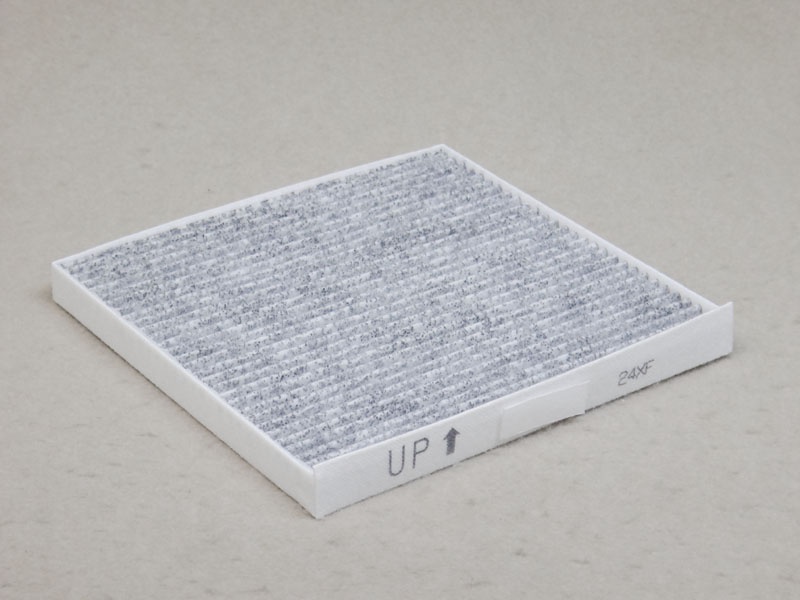 UP ↑
24XF